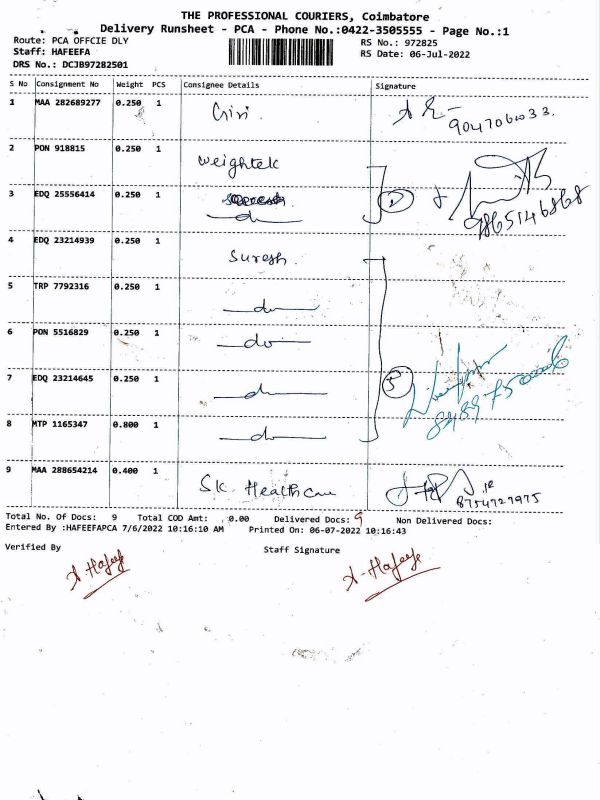 THE PROFESSIONAL COURIERS, Coimbatore
Delivery Runsheet - PCA - Phone No.:0422-3505555 - Page No.:1
Route: PCA OFFCIE DLY RS No.: 972825
Staff: HAFEEFA RS Date: 06-Jul-2022
DRS No.: DCJB97282501
S No Consignment No Weight PCS Consignee Details Signature
1 MAA 282689277 0.250 1 Giri.
2 PON 918815 0.250 1 Weightek
3 EDQ 25556414 0.250 1 do 2 9865146868
4 EDQ 23214939 0.250 1 Suresh
5 TRP 7792316 0.250 1 do
6 PON 5516829 0.250 1 do
7 EDQ 23214645 0.250 1 do 5
8 MTP 1165347 0.800 1 do
9 MAA 288654214 0.400 1 SK. Healthcare 8754727975
Total No. Of Docs: 9 Total COD Amt: 0.00 Delivered Docs: 9 Non Delivered Docs:
Entered By :HAFEEFAPCA 7/6/2022 10:16:10 AM Printed On: 06-07-2022 10:16:43
Verified By Staff Signature
A. Hafeefa A. Hafeefa